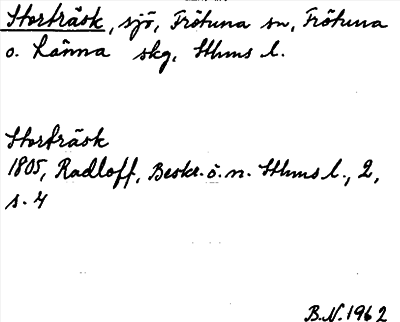 Storträsk, sjö, Frötuna sn, Frötuna
o. Länna skg, Sthms l.
Storträsk
1805, Radloff, Beskr. ö. n. Sthms l., 2,
s. 4
B.N. 1962